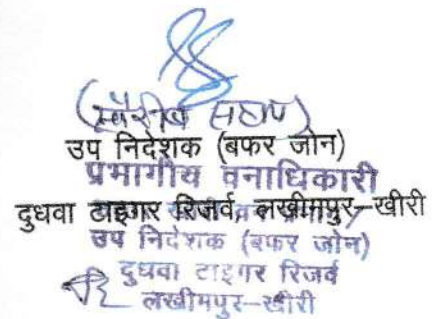 उप निदेशक (बफर जोन)
प्रभागीय वनाधिकारी
दुधवा टाइगर रिजर्व, लखीमपुर–खीरी
उप निदेशक (बफर जोन)
दुधवा टाइगर रिजर्व
लखीमपुर–खीरी